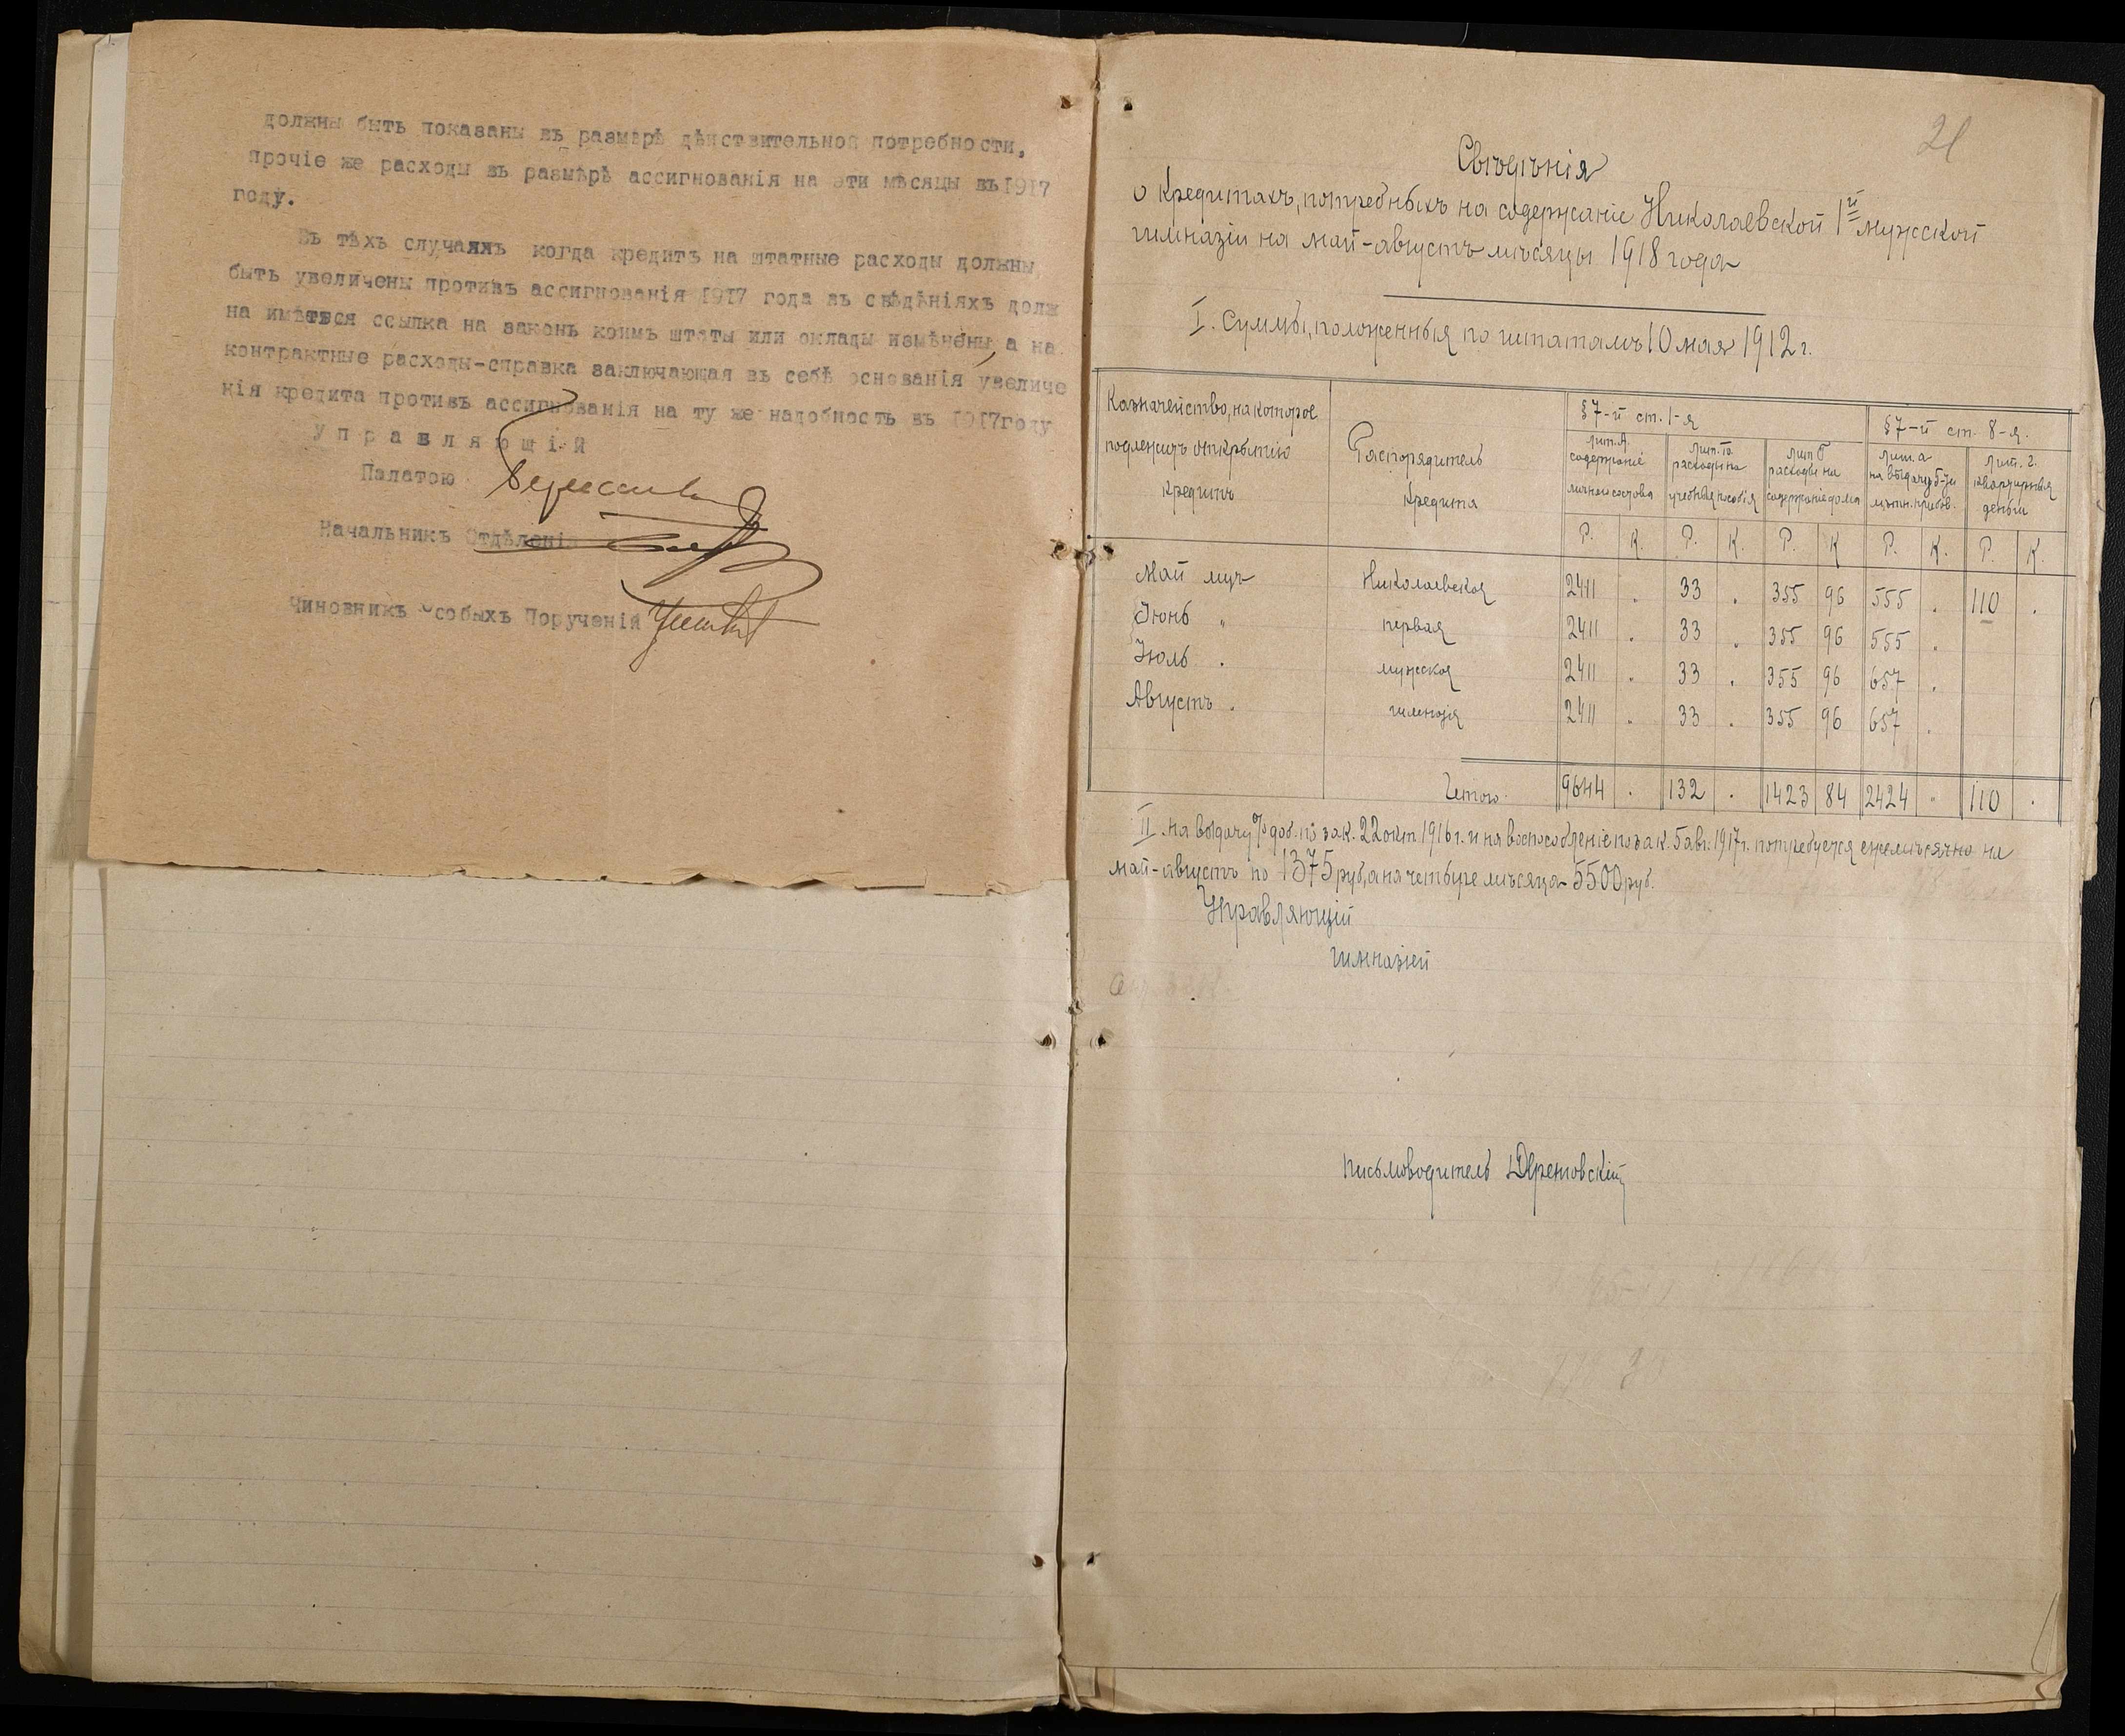 должны быть показаны въ размѣрѣ дѣйствительной потребности,
прочіе же расходы въ размѣрѣ ассигнованія на эти мѣсяцы въ 1917
году.
Въ тѣхъ случаяхъ когда кредитъ на штатные расходы должны
быть увеличены противъ ассигнованія 1917 года въ свѣдѣніяхъ долж
на имѣться ссылка на законъ коимъ штаты или оклады измѣнены, а на
контрактные расходы-справка заключающая въ себѣ основанія увеличе
нія кредита противъ ассигнованія на ту же надобность въ 1917году
Управляющій
Палатою
Начальникъ Отдѣленія
Чиновникъ Особыхъ Порученій
21
Свѣдѣнія
о кредитахъ, потребныхъ на содержаніе Николаевской 1й мужской
гимназіи на май-августъ мѣсяцы 1918 года
I. Суммы, положенныя по штатамъ 10 мая 1912 г.
Казначейство, на которое подлежитъ открытію кредитъ
Распорядитель кредита
§7-й ст. 1-я
§7-й ст. 8-я.
лит. А. содержаніе личнаго состава
расходы на учебныя пособія
лит Б расходы на содержаніе дома
лит. а на выдачу 5-ти лѣтн. прибав.
лит. г. квартирныя деньги
Р. К. Р. К. Р. К Р. К. Р. К.
Май мцъ Николаевская 2411 . 33 . 355 96 555 . 110 .
Іюнь " первая 2411 . 33 . 355 96 555 .
Іюль . мужская 2411 . 33 . 355 96 657 .
Августъ . гимназія 2411 . 33 . 355 96 657 .
Итого 9644 . 132 . 1423 84 2424 . 110 .
II. на выдачу % доб. по зак. 22 окт. 1916 г. и на воспособленіе по зак. 5 авг. 1917 г. потребуется ежемѣсячно на
май-августъ по 1375 руб, а на четыре мѣсяца - 5500 руб.
Управляющій
гимназіей
Письмоводитель